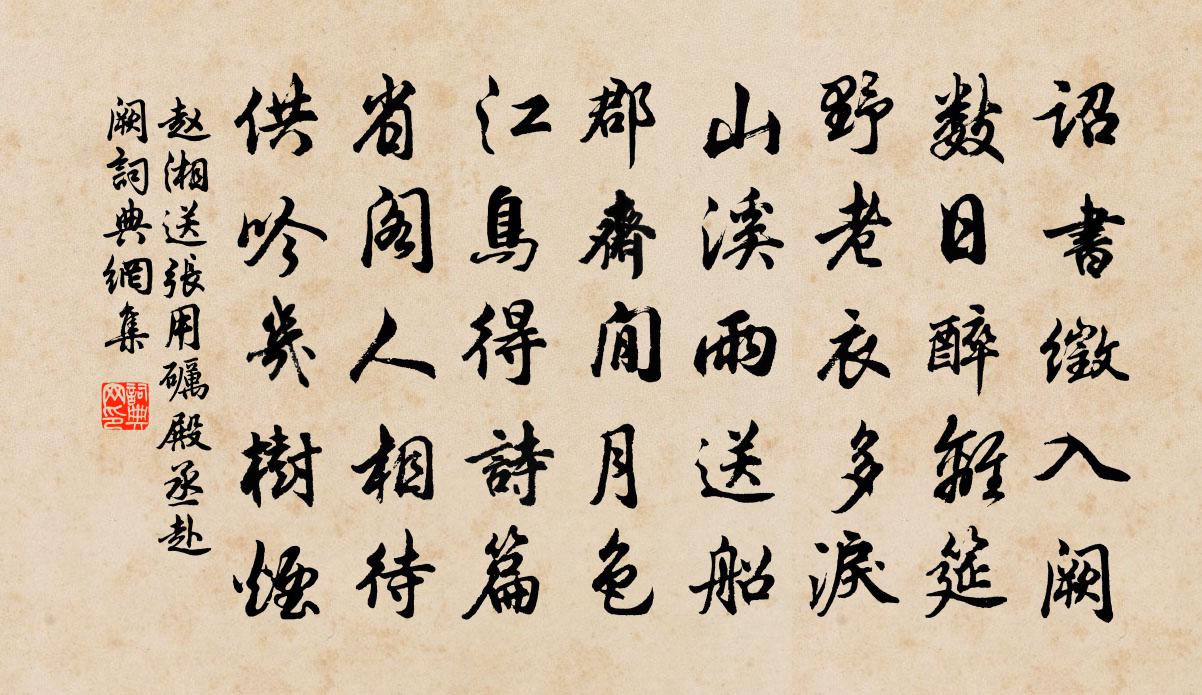 詔書徵入闕
數日醉離筵
野老衣多淚
山溪雨送船
郡齋閒月色
江鳥得詩篇
省閣人相待
供吟幾樹煙
赵湘送張用礪殿丞赴
闕詞典網集
詞典
网印